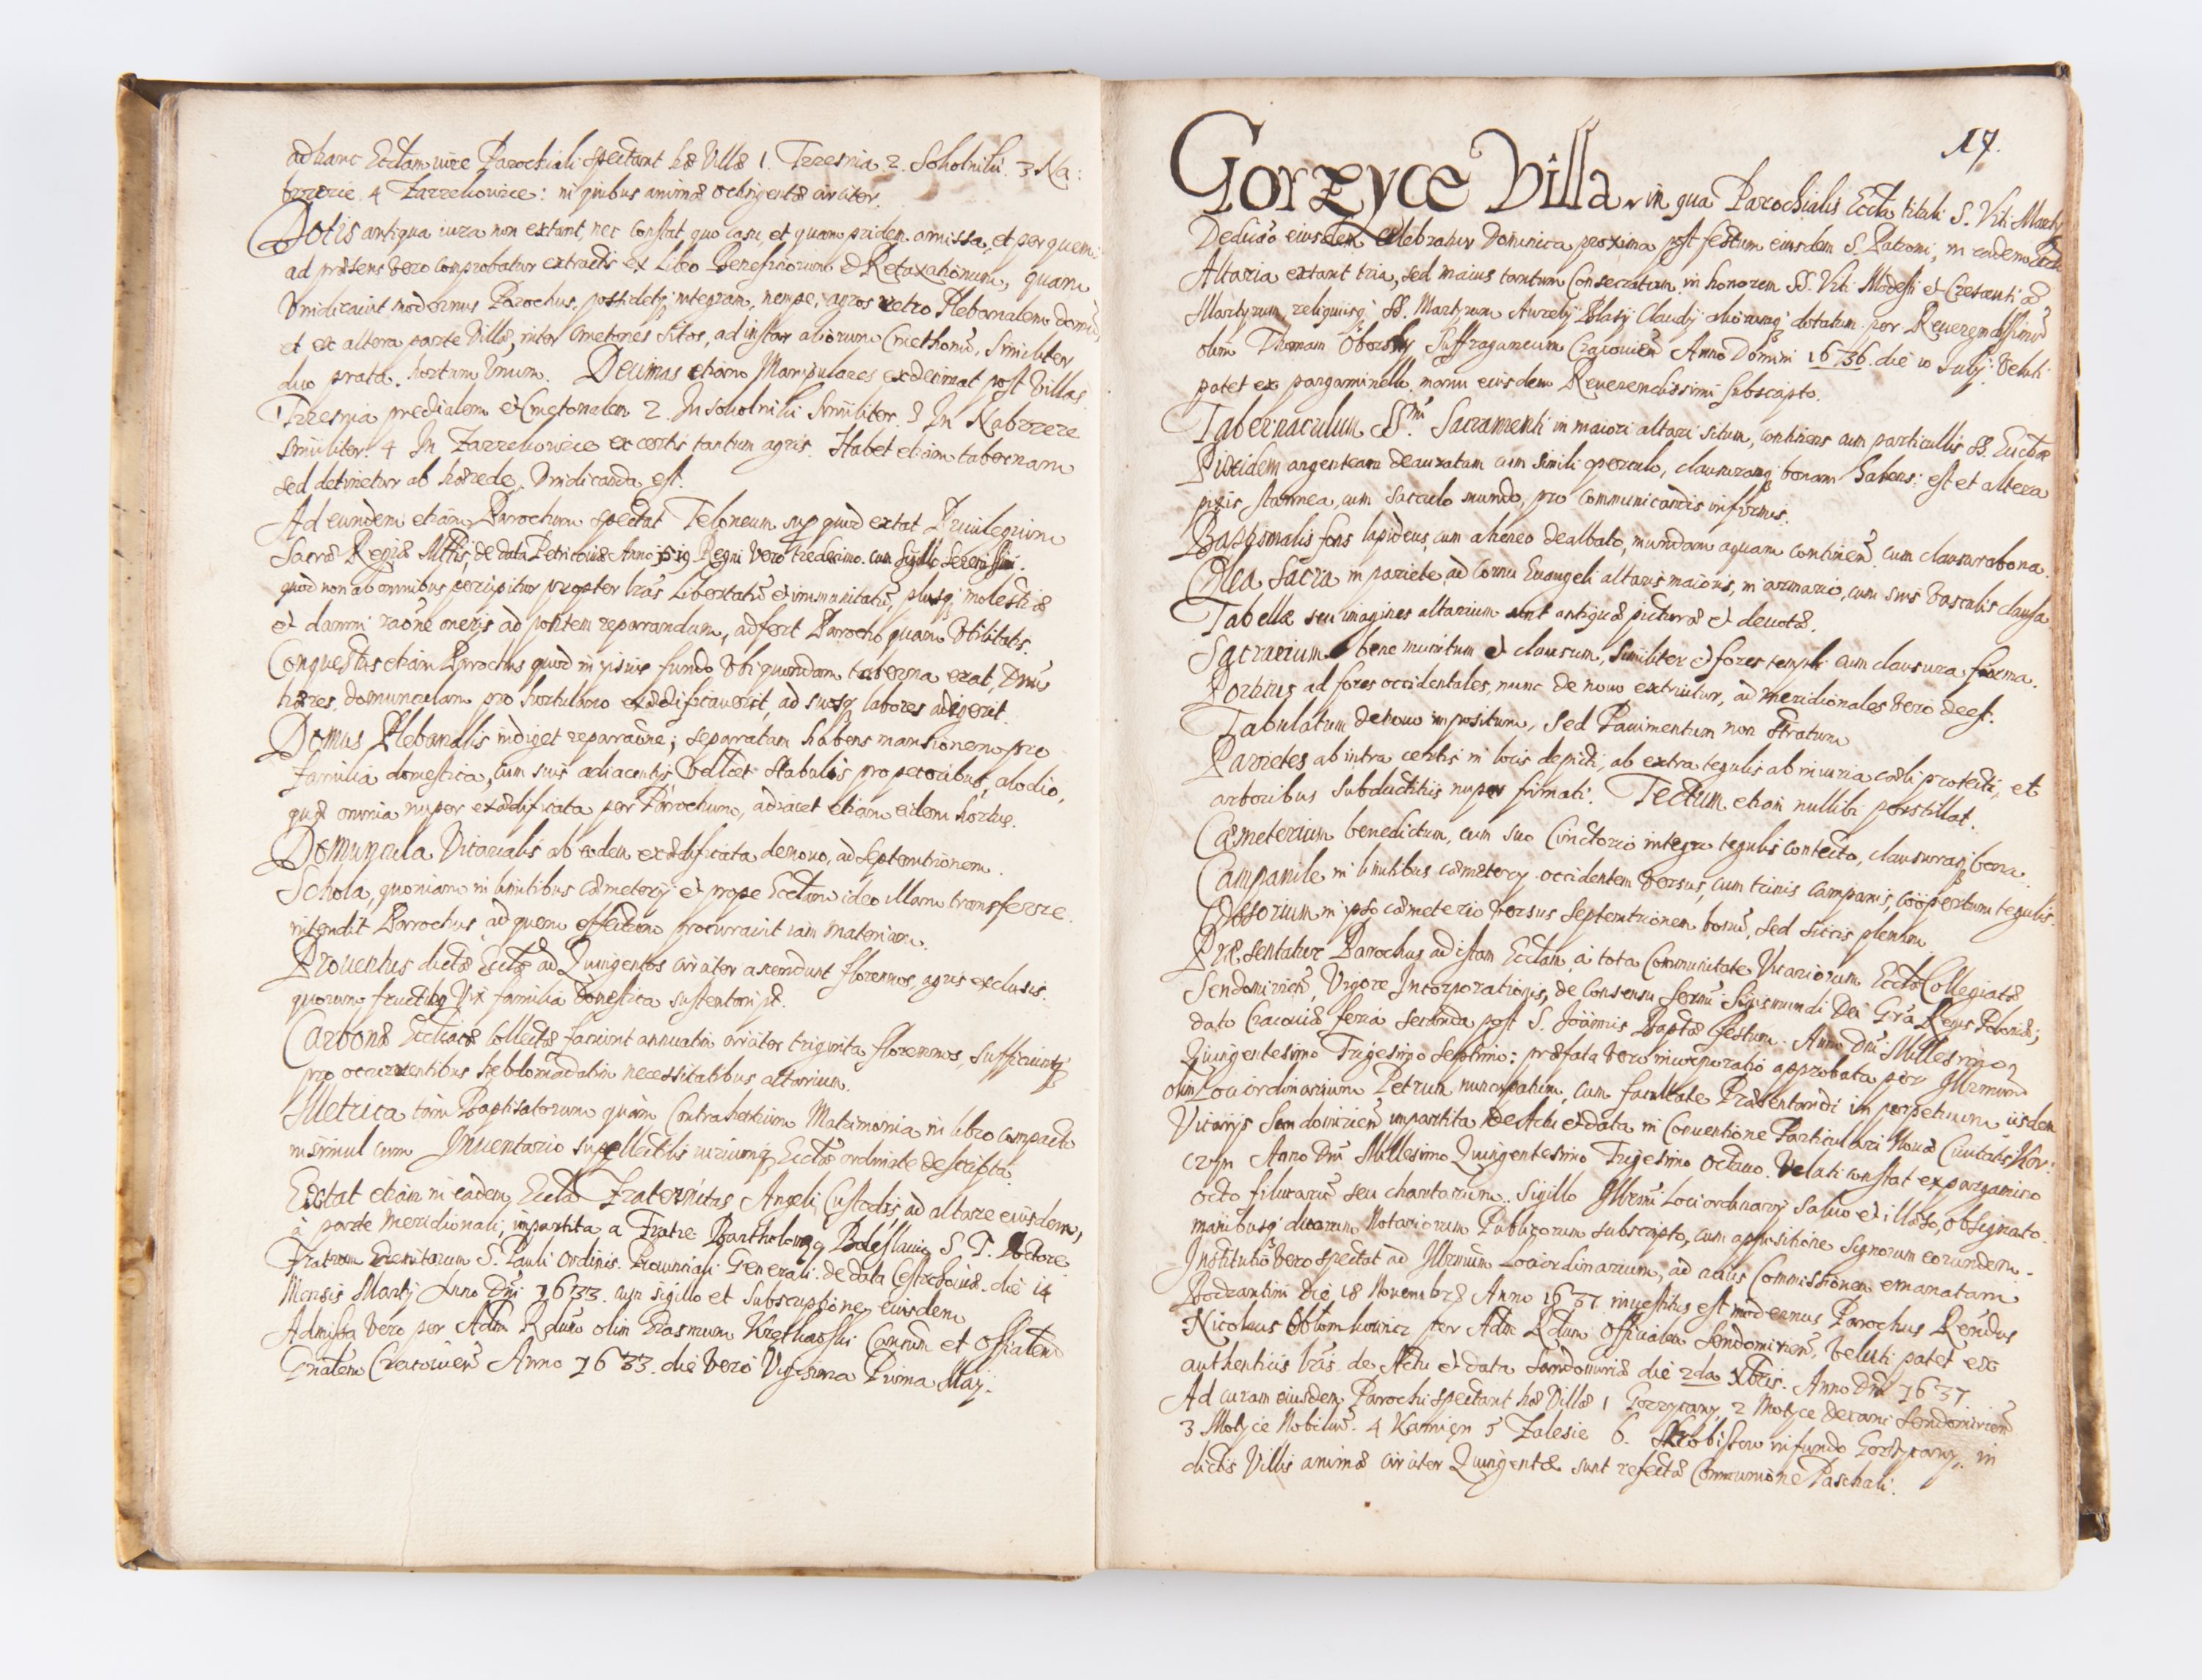 ad hanc Ecctam iure Parochiali spectant hæ Villæ 1. Trzesnia 2. Sokolniki. 3 Na:
brzezie. 4 Zarzekowice: in quibus animæ octingentæ circiter.
Dotis antiqua iura non extant, nec constat quo casu, et quam pridem amissa, et per quem:
ad præsens vero comprobatur extractis ex Libro Beneficiorum et Retaxationum, quam
Vindicavit modernus Parochus, possidetq; integram, nempe, agros retro Plebanalem domũ,
et ex altera parte Villæ, inter Cmetones sitos, ad instar aliorum Cmethonũ, similiter
duo prata, hortum Unum. Decimas etiam Manipulares exdecimat post Villas
1 Trzesnia predialem et Cmetonalem 2. In Sokolniki similiter. 3 In Nabrzeze
similiter. 4 In Zarzekowice ex certis tantum agris. Habet etiam tabernam
sed detinetur ab hærede. Vindicanda est.
Ad eundem etiam Parochum spectat Teloneum sup quod extat Privilegium
Sacræ Regiæ Mttis, de data Petricoviæ Anno 1519 Regni vero tredecimo. cum Sigillo Serenissimi.
quod non ab omnibus percipitur propter lras Libertatũ et immunitatũ, plusq; molestiæ
et damni raõne oneris ad pontem reparandum, adfert Parocho quam Utilitatis.
Conquestus etiam Parochus quod in ipsius fundo Ubi quondam taberna erat, Dnũs
hæres, domunculam pro hortulano exædificaverit, ad suosq; labores adigerit.
Domus Plebanalis indiget reparaõne; separatam habens mansionem pro
familia domestica, cum suis adiacentijs Vdlcet Stabulis pro pecoribus, alodio,
quæ omnia nuper exædificata per Parochum, adiacet etiam eidem hortus.
Domuncula Vicarialis ab eodem exædificata denovo, ad Septemtrionem.
Schola, quoniam in limitibus cæmeterij et prope Ecctam ideo illam transferre
intendit Parochus, ad quem effectum procuravit iam materiam.
Proventus dictæ Ecctæ ad Quingentos circiter ascendunt florennos, agris exclusis.
quorum fructibq Vix familia domestica sustentari pt.
Carbonæ Eccticæ collectæ faciunt annuatim circiter triginta florennos, sufficiuntq;
pro occurrentibus hebdomadatim necessitatibus altarium.
Metrica tam Baptisatorum quàm Contrahentium Matrimonia in libro compacto
insimul cum Inventario supellectilis iuriumq; Ecctæ ordinate descripta.
Extat etiam in eadem Eccta Fraternitas Angeli Custodis ad altare eiusdem,
à parte Meridionali, impartita a Fratre Bartholomeo Boleslavio S. T. Doctore
Fratrum Eremitarum S. Pauli Ordinis. Provinciali Generali. de data Cestochoviæ. die 14
Mensis Martij Anno Dni 1633. cum sigillo et Subscriptione eiusdem
Admissa Vero per Adm Rdum olim Erasmum Kretkowski Cancum et Officialem
Gnalem Cracovien̄ Anno 1633. die Vero Vigesima Prima Maij.
17.
Gorzyce Villa, in qua Parochialis Eccta tituli S. Viti Marty
Dedicaõ eiusdem celebratur Dominica proxima post festum eiusdem S. Patroni, in eadem Eccta
Altaria extant tria, sed maius tantum Consecratum in honorem SS. Viti Modesti et Crescentiæ
Martyrum, reliquiisq; SS. Martyrum Aurelij Blasij Claudij aliorumq; dotatum per Reverendissimũ
olim Thomam Oborsky Suffraganeum Cracovien̄ Anno Domini 1636. die 10 Julij. Veluti
patet ex pargaminello. manu eiusdem Reverendissimi subscripto.
Tabernaculum SSmi Sacramenti in maiori altari situm, continens cum particullis SS. Euchæ
Pixidem argenteam deauratam cum simili operculo, clausuramq; bonam habens: est et altera
pixis stannea, cum sacculo mundo, pro communicandis infirmis.
Baptismalis fons lapideus, cum aheneo dealbato, mundam aquam continen̄. cum clausura bona.
Olea Sacra in pariete ad Cornu Evangeli altaris maioris, in armario, cum suis vasculis clausa.
Tabellæ seu imagines altarium sunt antiquæ picturæ et devotæ.
Sacrarium bene munitum et clausum, similiter et fores templi cum clausura firma.
Porticus ad fores occidentales, nunc de novo extruitur, ad meridionales vero deest.
Tabulatum denovo impositum, sed Pavimentum non stratum
Parietes ab intra certis in locis depicti, ab extra tegulis ab iniuria cæli protecti, et
arboribus subductitiis nuper firmati. Tectum etiam nullibi perstillat.
Cæmeterium benedictum, cum suo Cinctorio integro tegulis contecto, clausuraq; bona.
Campanile in limitibus cæmetery occidentem versus, cum trinis campanis, coopertum tegulis.
Ossorium in ipso cæmeterio versus Septemtrionem bonũ, sed siccis plenum.
Præsentatur Parochus ad istam Ecctam, à tota Communitate Vicariorum Ecctæ Collegiatæ
Sendomirien̄, Vigore Incorporationis, de Consensu Sermi Sigismundi Dei Gra Regis Poloniæ;
dato Cracoviæ feria secunda post S. Joannis Baptæ festum. Anno Dni Millesimo
Quingentesimo Trigesimo Septimo: præfata vero incorporatio approbata per Illrmum
olim Loci ordinarium Petrum nuncupatum, cum facultate Præsentandi in perpetuum iisdem
Vicarijs Sendomirien̄ impartita de Actu et data in Conventione Particulari Novæ Civitatis Kor:
czyn Anno Dni Millesimo Quingentesimo Trigesimo Octavo. Veluti constat ex pargamino
octo filurarũ seu chartarum. Sigillo Illrmi Loci ordinarij salvo et illæso, obsignato
manibusq; duorum Notariorum Publicorum subscripto, cum appositione Signorum eorundem.
Institutio vero spectat ad Illrmum Loci ordinarium, ad cuius Commissionem emanatam
Bodzantini die 18 Novembris Anno 1637 investitus est modernus Parochus Rendus
Nicolaus Oblomkowicz per Adm Rdum Officialem Sendomirien̄, veluti patet ex
authenticis lris. de Actu et data Sandomiriæ die 2da Xbris. Anno Dni 1637
Ad curam eiusdem Parochi spectant hæ Villæ 1 Gorzyczany, 2 Motycze decani Sendomirien̄
3 Motycze Nobilium. 4 Kamięn 5 Zalesie 6. Skrobiszow in fundo Gorzyczany. in
dictis Villis animæ circiter Quingentæ sunt refectæ Communione Paschali.